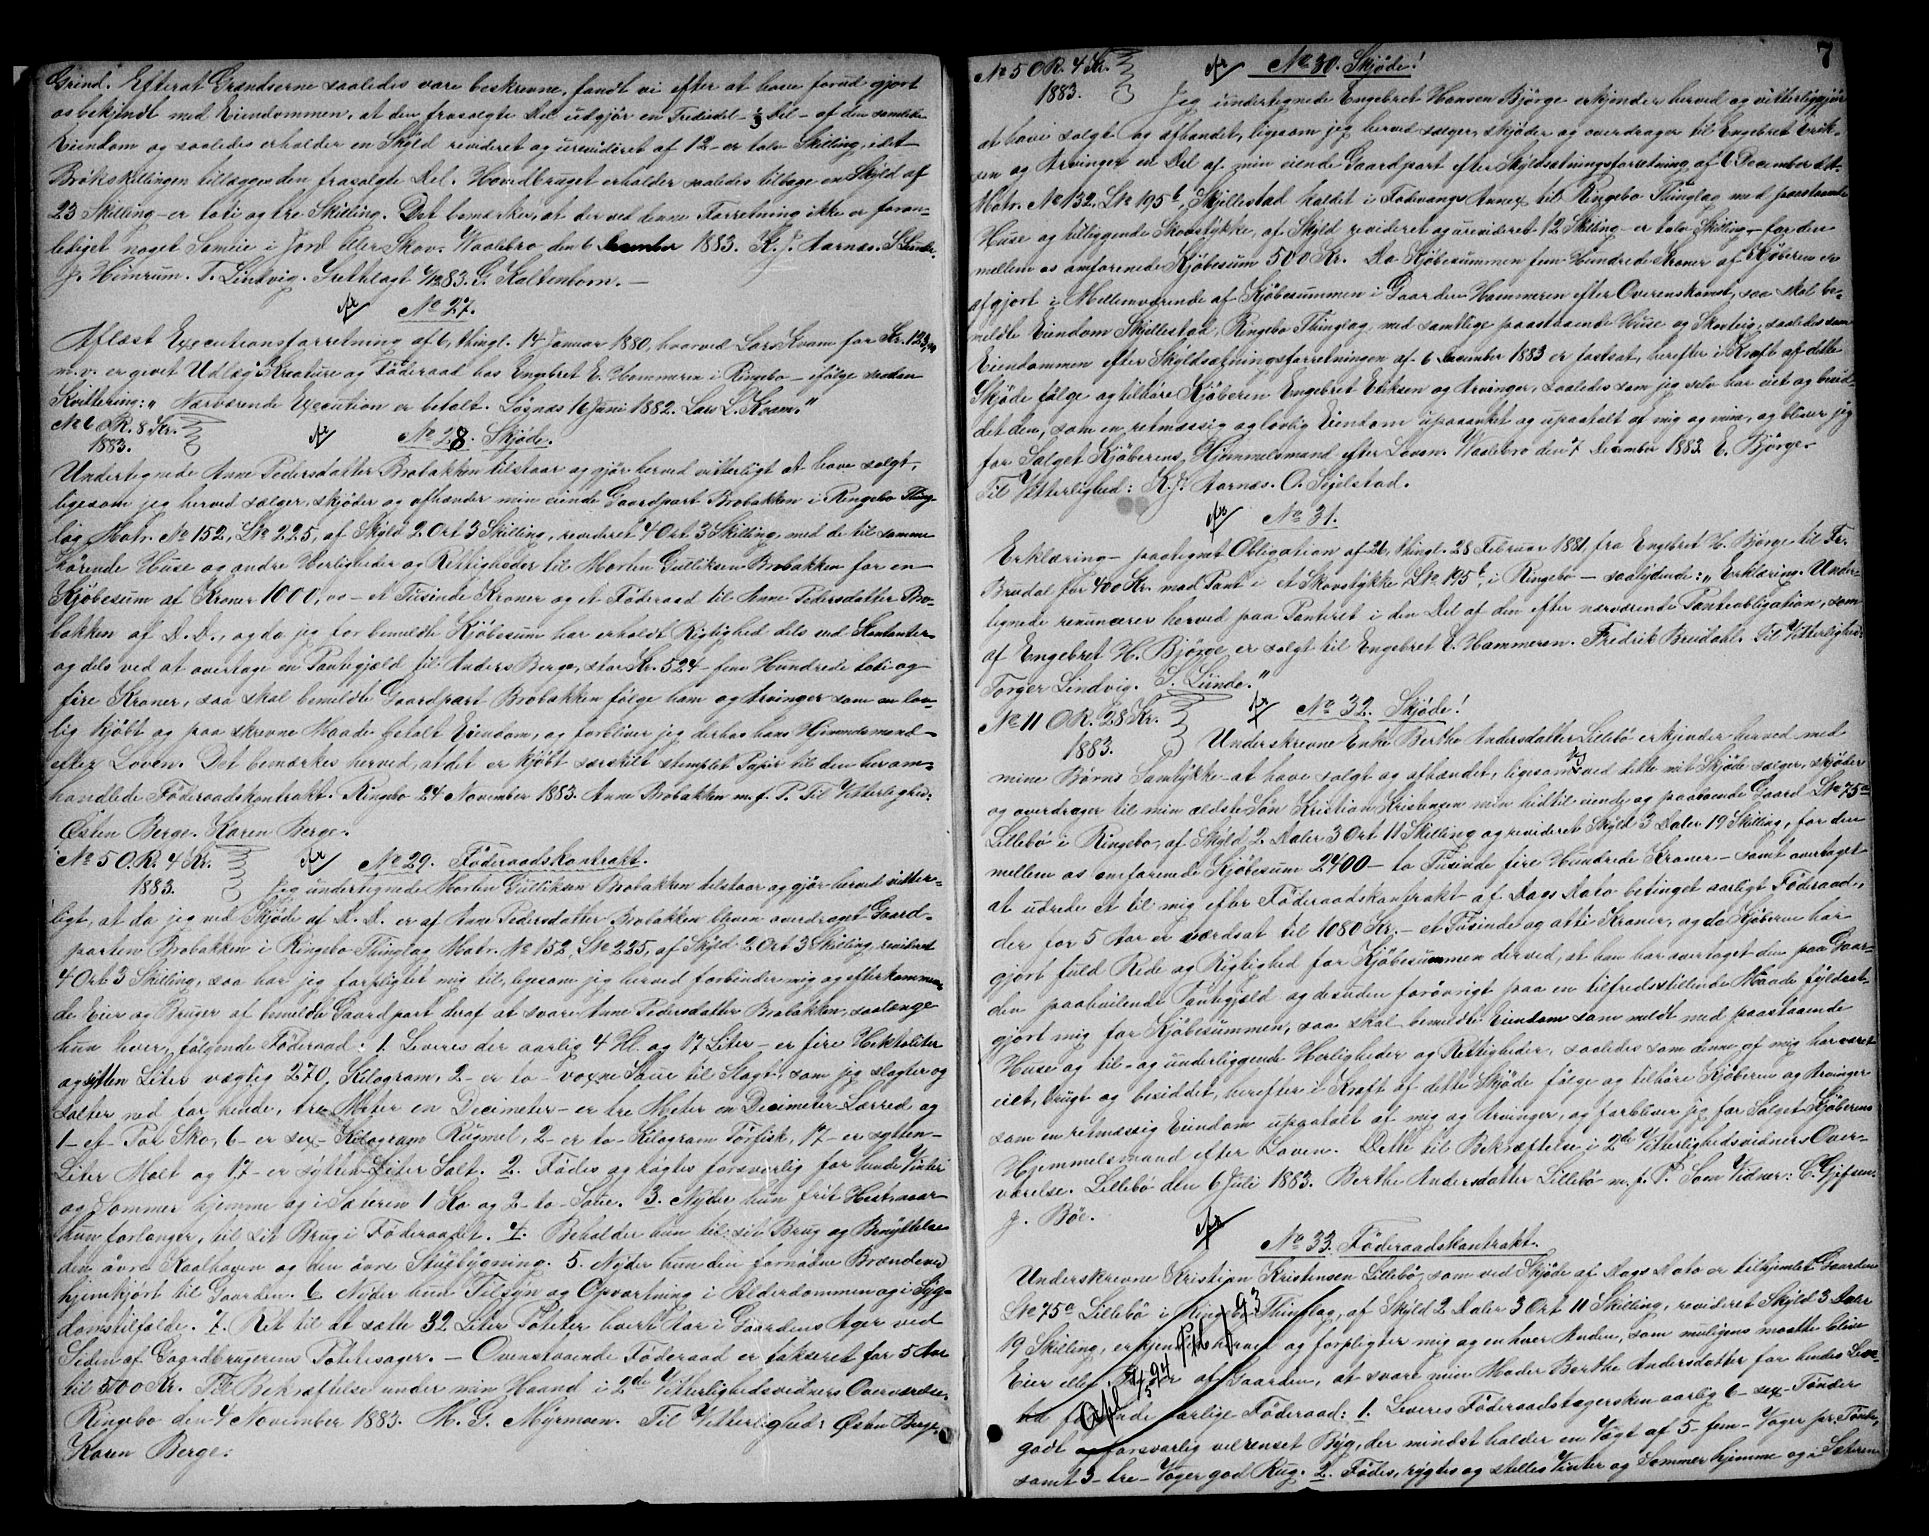 Grind. Efterat Grændserne saaledes vare beskrevne, fandt vi efter at have forud gjort
os bekjendt med Eiendommen, at den frasolgte Del udgjør en Trediedel - 1/3 Del - af den samlede
Eiendom og saaledes erholder en Skyld revideret og urevideret af 12 - er tolv Skilling, idet
Brøkskillingen tillægges den frasolgte Del. Hovedbruget erholder saaledes tilbage en Skyld af
23 Skilling - er toti og tre Skilling. Det bemærkes, at der ved denne Forretning ikke er foran-
lediget noget Sameie i Jord eller Skov. Vaalebro den 6 December 1883. K. J. Aarnæs. S. Lunde.
J. Heimrum. T. Lindvig. Fremlagt 7/12 83. G. Kaltenborn. -
No 27.
Aflæst Executionsforretning af 6, thingl. 14 Januar 1880, hvorved Lars Kvam for Kr. 123,
m. v. er givet Udlæg i Kreature og Føderaad hos Engebret E. Hammeren i Ringebo - ifølge saadan
Kvittering: „ Nærværende Execution er betalt. Løsnæs 16 Juni 1882. Lars L. Kvam."
No 6 O R. 8 Kr.
1883.
No 28. Skjøde.
Undertegnede Anne Pedersdatter Brobakken tilstaar og gjør herved vitterligt at have solgt,
ligesom jeg herved sælger, skjøder og afhænder min eiende Gaardpart Brobakken i Ringebo Thing-
lag, Matr. No 152, LNo 225, af Skyld 2 Ort 3 Skilling, revideret 4 Ort 3 Skilling, med de til samme
hørende Huse og andre Herligheder og Rettigheder til Morten Gulliksen Brobakken for en
Kjøbesum af Kroner 1000,00 - et Tusinde Kroner og et Føderaad til Anne Pedersdatter Bro-
bakken af D. D., og da jeg for bemeldte Kjøbesum har erholdt Rigtighed dels ved Kontanter
og dels ved at overtage en Pantegjæld til Anders Berge, stor Kr. 524 - fem Hundrede toti og
fire Kroner, saa skal bemeldte Gaardpart Brobakken følge ham og Arvinger som en lov-
lig kjøbt og paa skrevne Maade betalt Eiendom, og forbliver jeg derhos hans Hjemmelsmand
efter Loven. Det bemærkes herved, at det er kjøbt særskilt stemplet Papir til den her om-
handlede Føderaadskontrakt. Ringebo 24 November 1883. Anne Brobakken m. f. P. Til Vitterlighed:
Østen Berge. Karen Berge.
No 5 O R. 4 Kr.
1883.
No 29. Føderaadskontrakt.
Jeg undertegnede Morten Gulliksen Brobakken tilstaar og gjør herved vitter-
ligt, at da jeg ved Skjøde af D. D. er af Anne Pedersdatter Brobakken bleven overdraget Gaard-
parten Brobakken i Ringebo Thinglag Matr. No 152, LNo 225, af Skyld 2 Ort 3 Skilling, revideret
4 Ort 3 Skilling, saa har jeg forpligtet mig til, ligesom jeg herved forbinder mig og efterkommen-
de Eier og Bruger af bemeldte Gaardpart deraf at svare Anne Pedersdatter Brobakken, saalænge
hun lever, følgende Føderaad: 1. Leveres der aarlig 4 Hl. og 17 Liter - er fire Hektoliter
og sytten Liter vægtig 270 Kilogram, 2 - er to - voxne Saue til Slagt, som jeg slagter og
salter ned for hende, tre Meter en Decimeter - er tre Meter en Decimeter Lærred og
1 - et Par Sko, 6 - er sex Kilogram Rugmel, 2 - er to Kilogram Tørfisk, 17 - er sytten
Liter Malt og 17 - er sytten Liter Salt. 2. Fødes og røgtes forsvarlig for hende Vinter
og Sommer hjemme og i Sæteren 1 Ko og 2 - to - Saue. 3. Nyder hun frit Hest, naar
hun forlanger, til sit Brug i Føderaadet. 4. Beholder hun til sit Brug og Benyttelse
den øvre Kaalhaven og den øvre Stuebygning. 5. Nyder hun den fornødne Brændeved
hjemkjørt til Gaarden. 6. Nyder hun Tilsyn og Opvartning i Alderdommen og i Syg-
domstilfælde. 7. Ret til at sætte 32 Liter Poteter hvert Aar i Gaardens Ager ved
Siden af Gaardbrugerens Potetesager. - Ovenstaaende Føderaad er takseret for 5 Aar
til 500 Kr. Til Bekræftelse under min Haand i 2de Vitterlighedsvidners Overværelse.
Ringebo den 4 November 1883. M. G. Myrmoen. Til Vitterlighed: Østen Berge.
Karen Berge.
7
No 5 O R. 4 Kr.
1883.
No 30. Skjøde!
Jeg undertegnede Engebret Hansen Bjørge erkjender herved og vitterliggjør
at have solgt og afhændet, ligesom jeg herved sælger, skjøder og overdrager til Engebret Erik-
sen og Arvinger en Del af min eiende Gaardpart efter Skyldsætningsforretning af 6 December d. A.
Matr. No 132, LNo 195b, Skjellestad kaldet i Fodvangs Annex til Ringebo Thinglag med paastaaende
Huse og tilliggende Skovstykke, af Skyld revideret og urevideret 12 Skilling - er tolv Skilling - for den
mellem os omforenede Kjøbesum 500 Kr. Da Kjøbesummen fem Hundrede Kroner af Kjøberen er
afgjort i Mellemværende af Kjøbesummen i Gaarden Hammeren efter Overenskomst, saa skal be-
meldte Eiendom Skjellestad, Ringebo Thinglag, med samtlige paastaaende Huse og Skovteig, saaledes som
Eiendommen efter Skyldsætningsforretningen af 6 December 1883 er fastsat, herefter i Kraft af dette
Skjøde følge og tilhøre Kjøberen Engebret Eriksen og Arvinger, saaledes som jeg selv har eiet og besid-
det den, som en retmæssig og lovlig Eiendom upaaanket og upaatalt af mig og mine, og bliver jeg
for Salget Kjøberens Hjemmelsmand efter Loven. Vaalebro den 7 December 1883. E. Bjørge.
Til Vitterlighed: K. J. Aarnæs. O. Segelstad.
No 31.
Erklæring paategnet Obligation af 21, thingl. 28 Februar 1881 fra Engebret H. Bjørge til Fr.
Brudal for 400 Kr. mod Pant i et Skovstykke LNo 195b, i Ringebo - saalydende: „Erklæring. Under-
tegnede renuncerer herved paa Panteret i den Del af den efter nærværende Panteobligation, som
af Engebret H. Bjørge er solgt til Engebret E. Hammeren. Fredrik Brudal. Til Vitterlighed:
Torger Lindvig. S. Lunde."
No 11 O R. 28 Kr.
1883.
No 32. Skjøde!
Underskrevne Enke Berthe Andersdatter Lillebö erkjender herved med
mine Børns Samtykke at have solgt og afhændet, ligesom jeg ved dette mit Skjøde sælger, skjøder
og overdrager til min ældste Søn Kristian Kristensen min hidtil eiende og paaboende Gaard LNo 75a
Lillebö i Ringebo, af Skyld 2 Daler 3 Ort 11 Skilling og revideret Skyld 3 Daler 19 Skilling, for den
mellem os omforenede Kjøbesum 2400 - to Tusinde fire Hundrede Kroner - samt overtaget
at udrede et til mig efter Føderaadskontrakt af Dags Dato betinget aarligt Føderaad,
der for 5 Aar er værdsat til 1080 Kr. - et Tusinde og otti Kroner, og da Kjøberen har
gjort fuld Rede og Rigtighed for Kjøbesummen derved, at han har overtaget den paa Gaar-
den paahvilende Pantegjæld og desuden forøvrigt paa en tilfredsstillende Maade fyldest-
gjort mig for Kjøbesummen, saa skal bemeldte Eiendom som meldt med paastaaende
Huse og til- og underliggende Herligheder og Rettigheder, saaledes som denne af mig har været
eiet, brugt og besiddet, herefter i Kraft af dette Skjøde følge og tilhøre Kjøberen og Arvinger
som en retmæssig Eiendom upaatalt af mig og Arvinger, og forbliver jeg for Salget Kjøberens
Hjemmelsmand efter Loven. Dette til Bekræftelse i 2de Vitterlighedsvidners Over-
værelse. Lillebö den 6 Juli 1883. Berthe Andersdatter Lillebö m. f. P. Som Vidner: C. Gjefsen.
J. Böe.
No 33. Føderaadskontrakt.
Underskrevne Kristian Kristensen Lillebö, som ved Skjøde af Dags Dato er tilhjemlet Gaarden
LNo 75a Lillebö i Ringebo Thinglag, af Skyld 2 Daler 3 Ort 11 Skilling, revideret Skyld 3 Daler
19 Skilling, erkjender herved og forpligter mig og enhver Anden, som muligens maatte blive
Eier eller Bruger af Gaarden, at svare min Moder Berthe Andersdatter for hendes Leve-
tid følgende aarlige Føderaad: 1. Leveres Føderaadstagersken aarlig 6 - sex - Tønder
godt og forsvarlig velrenset Byg, der mindst holder en Vægt af 5 - fem - Voger pr. Tønde,
samt 3 - tre - Voger god Rug. 2. Fødes, røgtes og stelles Vinter og Sommer hjemme og i Sæteren